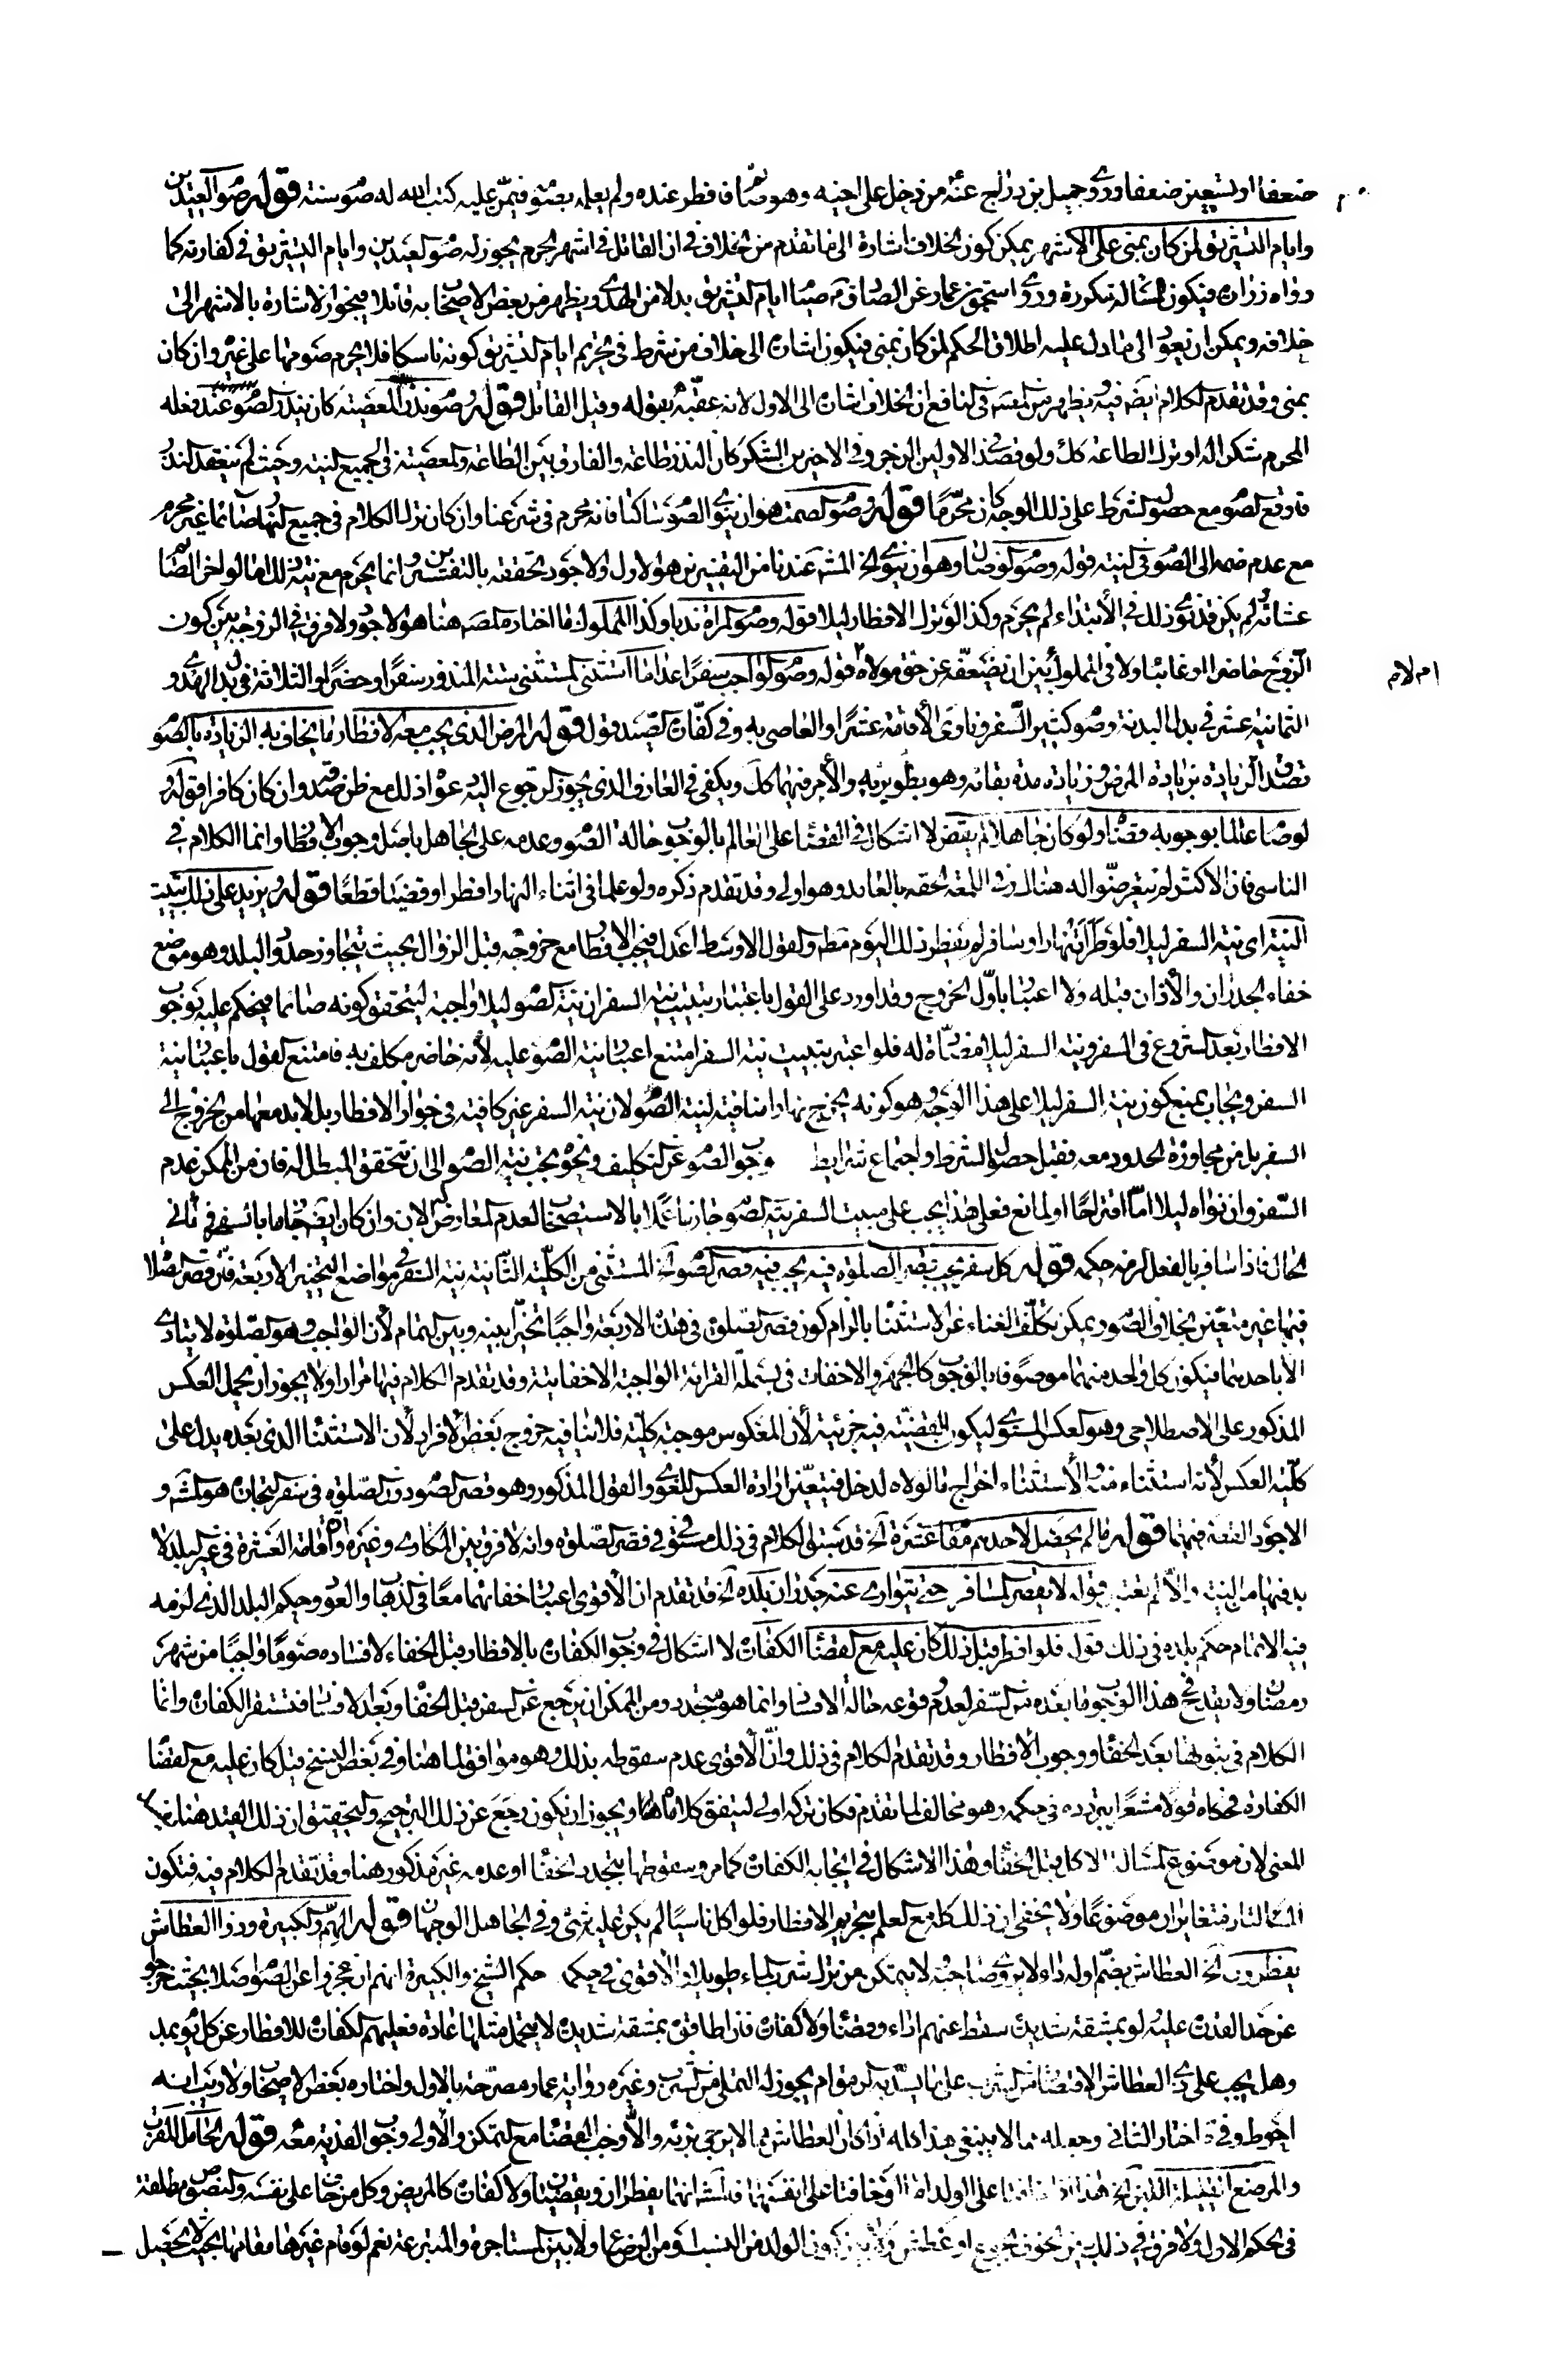 ضعفا او تسعين ضعفا وروى جميل بن دراج عنه من دخل على اخيه وهو صائم فافطر عنده ولم يعلمه بصومه فيمن عليه كتب الله له صوم سنة قوله صوم العيدين
وايام التشريق لمن كان بمنى على الاشهر يمكن كون الخلاف اشارة الى ما تقدم من الخلاف في ان القاتل في اشهر الحرم يجوز له صوم العيدين وايام التشريق في كفارته كما
رواه زرارة فيكون المسالة مكررة وروى اسحق بن عمار عن الصادق صيام ايام التشريق بدلا من الهدي ويظهر من بعض الاصحاب به قائلا فيجوز الاشارة بالاشهر الى
خلافه ويمكن ان يعود الى ما دل عليه اطلاق الحكم لمن كان بمنى فيكون اشارة الى خلاف من شرط في تحريم ايام التشريق كونه ناسكا فلا يحرم صومها على غيره وان كان
بمنى وقد تقدم الكلام ايضا فيه ويظهر من المصنف في النافع ان الخلاف اشارة الى الاول لانه عقبه بقوله وقيل القاتل قوله وصوم نذر المعصية كان ينذر الصوم عند فعله
المحرم شكرا له او ترك الطاعة كك ولو قصد في الاولين الزجر وفي الاخيرين الشكر كان النذر طاعة والفارق بين الطاعة والمعصية في الجميع النية وحيث لم ينعقد النذر
فاوقع الصوم مع حصول الشرط على ذلك الوجه كان محرما قوله وصوم الصمت هو ان ينوي الصوم ساكتا فانه محرم في شرعنا وان كان ترك الكلام في جميع النهار صائما غير محرم
مع عدم ضمه الى الصوم في النية قوله وصوم الوصال وهو ان ينوي الخ المشهور عندنا من التفسيرين هو الاول ولا جود تحققه بالتفسيرين وانما يحرم مع نية ذلك اما لو اخر الصائم
عشائه لم يكن قد نوى ذلك في الابتداء لم يحرم وكذا لو ترك الافطار ليلا قوله وصوم المراة ندبا وكذا المملوك ما اختاره المص هنا هو الاجود ولا فرق في الزوجة بين كون
الزوج حاضرا او غائبا ولا في المملوك بين ان يضعفه عن حق مولاه لا ام لا قوله وصوم الواجب سفرا عدا ما استثنى المستثنى ستة المنذور سفرا وحضرا والثلاثة في بدل الهدي و
الثمانية عشر في بدل البدنة وصوم كثير السفر وناوي الاقامة عشرا والعاصي به وفي كفارة الصيد قول قوله المرض الذي يجب معه الافطار ما يخاف به الزيادة بالصوم
تصدق الزيادة بزيادة المرض وزيادة مدة بقائه وهو بطوء برئه والامر فيهما كك ويكفي في العارف الذي يجوز الرجوع اليه في ذلك مع ظن صدقه وان كان كافرا قوله
لو صام عالما بوجوبه قضاه ولو كان جاهلا لم يقض لا اشكال في القضاء على العالم بالوجوب حالة الصوم وعدمه على الجاهل باصل وجوب الافطار وانما الكلام في
الناسي فان الاكثر لم يتعرضوا له هنالك وفي اللمعة الحقه بالعامد وهو اولى وقد تقدم ذكره ولو علما في اثناء النهار افطرا وقضيا قطعا قوله ويزيد على ذلك تبييت
النية اي نية السفر ليلا فلو طرات نهارا وسافر لم يفطر ذلك اليوم مطلقا والقول الاوسط اعدل فيجب الافطار مع خروجه قبل الزوال بحيث يتجاوز حدود البلد وهو موضع
خفاء الجدران والاذان قبله ولا اعتبار باول الخروج وقد اورد على القول باعتبار تبييت نية السفر ان نية الصوم ليلا واجبة ليتحقق كونه صائما فيحكم عليه بوجوب
الافطار بعد الشروع في السفر ونية السفر ليلا مضادة له فلو اعتبر تبييت نية السفر امتنع اعتبار نية الصوم عليه لانه حاضر مكلف به فامتنع القول باعتبار نية
السفر ويجاب بمنع كون نية السفر ليلا على هذا الوجه وهو كونه يخرج نهارا منافية لنية الصوم لان نية السفر غير كافية في جواز الافطار بل لا بد معها من الخروج الى
السفر بل من مجاوزة الحدود معه فقبل حصول الشرط واجتماع شرايط وجوب الصوم عن التكليف ونحوه يجب نية الصوم الى ان يتحقق المبطل له فان من الممكن عدم
السفر وان نواه ليلا اما اقتراحا او لمانع فعلى هذا يجب على مبيت السفر نية الصوم جازما عملا بالاستصحاب لعدم المعارض له الان وان كان ايضا جازما بالسفر في ثاني
الحال فاذا سافر بالفعل لزمه حكمه قوله كل سفر يجب قصر الصلوة فيه يجب فيه قصر الصوم الخ المستثنى من الكلية الثانية نية السفر في مواضع التخيير الاربعة فان قصر الصلاة
فيها غير متعين بخلاف الصوم ويمكن تكلف الغناء عن الاستثناء بالتزام كون قصر الصلوة في هذه الاربعة واجبا تخييرا بينه وبين التمام لان الواجب وهو الصلوة لا يتادى
الا باحدهما فيكون كل واحد منهما موصوفا بالوجوب كالجهر والاخفات في بسملة القرائة الواجبة الاخفاتية وقد تقدم الكلام فيها مرارا ولا يجوز ان يحمل العكس
المذكور على الاصطلاحي وهو العكس المستوي ليكون القضية فيه جزئية لان المعكوس موجبة كلية فلا ينافيه خروج بعض الافراد لان الاستثناء الذي بعده يدل على
كلية العكس لانه استثناء منه والاستثناء اخراج ما لولاه لدخل فيتعين ارادة العكس اللغوي والقول المذكور وهو قصر الصوم دون الصلوة في سفر التجارة هو المشهور و
الاجود القصر فيهما قوله ما لم يحصل لاحدهم مقام عشرة الخ قد سبق الكلام في ذلك مستوفى في قصر الصلوة وانه لا فرق بين المكاري وغيره واقامة العشرة في غير بلده لا
بد فيها من النية والا لم يعتبر قوله لا يقصر المسافر حتى يتوارى عنه جدران بلده الخ قد تقدم ان الاقوى اعتبار خفائهما معا في الذهاب والعود وحكم البلد الذي لزمه
فيه الاتمام حكم بلده في ذلك قوله فلو افطر قبل ذلك كان عليه مع القضاء الكفارة لا اشكال في وجوب الكفارة بالافطار قبل الخفاء لافساده صوما واجبا من شهر
رمضان ولا يقدح في هذا الوجوب ما بعده من السفر لعدم وقوعه حالة الافساد وانما هو متجدد ومن الممكن ان يرجع عن السفر قبل الخفاء وبعد الافساد فتستقر الكفارة وانما
الكلام في ثبوتها بعد الخفاء ووجوب الافطار وقد تقدم الكلام في ذلك وان الاقوى عدم سقوطه بذلك وهو موافق لما هنا وفي بعض النسخ قيل كان عليه مع القضاء
الكفارة فحكاه قولا مشعرا بتردده في حكمه وهو مخالف لما تقدم فكان تركه اولى ليتفق كلاماه ويجوز ان يكون رجع عن ذلك الترجيح والتحقيق ان ذلك القيد هنا
المعنى لان موضوع المسالة الاكل قبل الخفاء وهذا لا اشكال في ايجابه الكفارة كما مر وسقوطها بتجدد الخفاء او عدمه غير مذكور هنا وقد تقدم الكلام فيه فتكون
المسالتان متغايرتان موضوعا ولا يخفى ان ذلك كله مع العلم بتحريم الافطار فلو اكل ناسيا لم يكن عليه شئ وفي الجاهل الوجهان قوله الهم والكبيرة وذو العطاش
يفطرون الخ العطاش بضم اوله داء لا يروى صاحبه لا يتمكن من ترك شرب الماء طويلا والاقوى في حكم الشيخ والكبيرة انهم ان عجزوا عن الصوم اصلا بحيث خرجوا
عن حد القدرة عليه لو بمشقة شديدة سقط عنهم اداء وقضاء ولا كفارة فان اطاقوه بمشقة شديدة لا يتحمل مثلها عادة فعليهم الكفارة للافطار عن كل يوم بمد
وهل يجب على ذي العطاش الاقتصار في الشرب على ما يسد به الرمق ام يجوز له التملي من الشرب وغيره رواية عمار مصرحة بالاول واختاره بعض الاصحاب ولا ريب انه
احوط وفي اختار الثاني وجعله مما لا ينبغي هذا كله اذا كان العطاش مما لا يرجى برئه والا وجب القضاء مع التمكن والاولى وجوب الفدية معه قوله الحامل المقرب
والمرضع القليلة اللبن الخ هذا اذا خافتا على الولد اما لو خافتا على انفسهما فالمشهور انهما يفطران ويقضيان ولا كفارة كالمريض وكل من خاف على نفسه والنصوص مطلقة
في الحكم الاول ولا فرق في ذلك بين الخوف لجوع او عطش ولا بين كون الولد من النسب او من الرضاع ولا بين المستاجرة والمتبرعة نعم لو قام غيرها مقامها بحيث لا يحصل